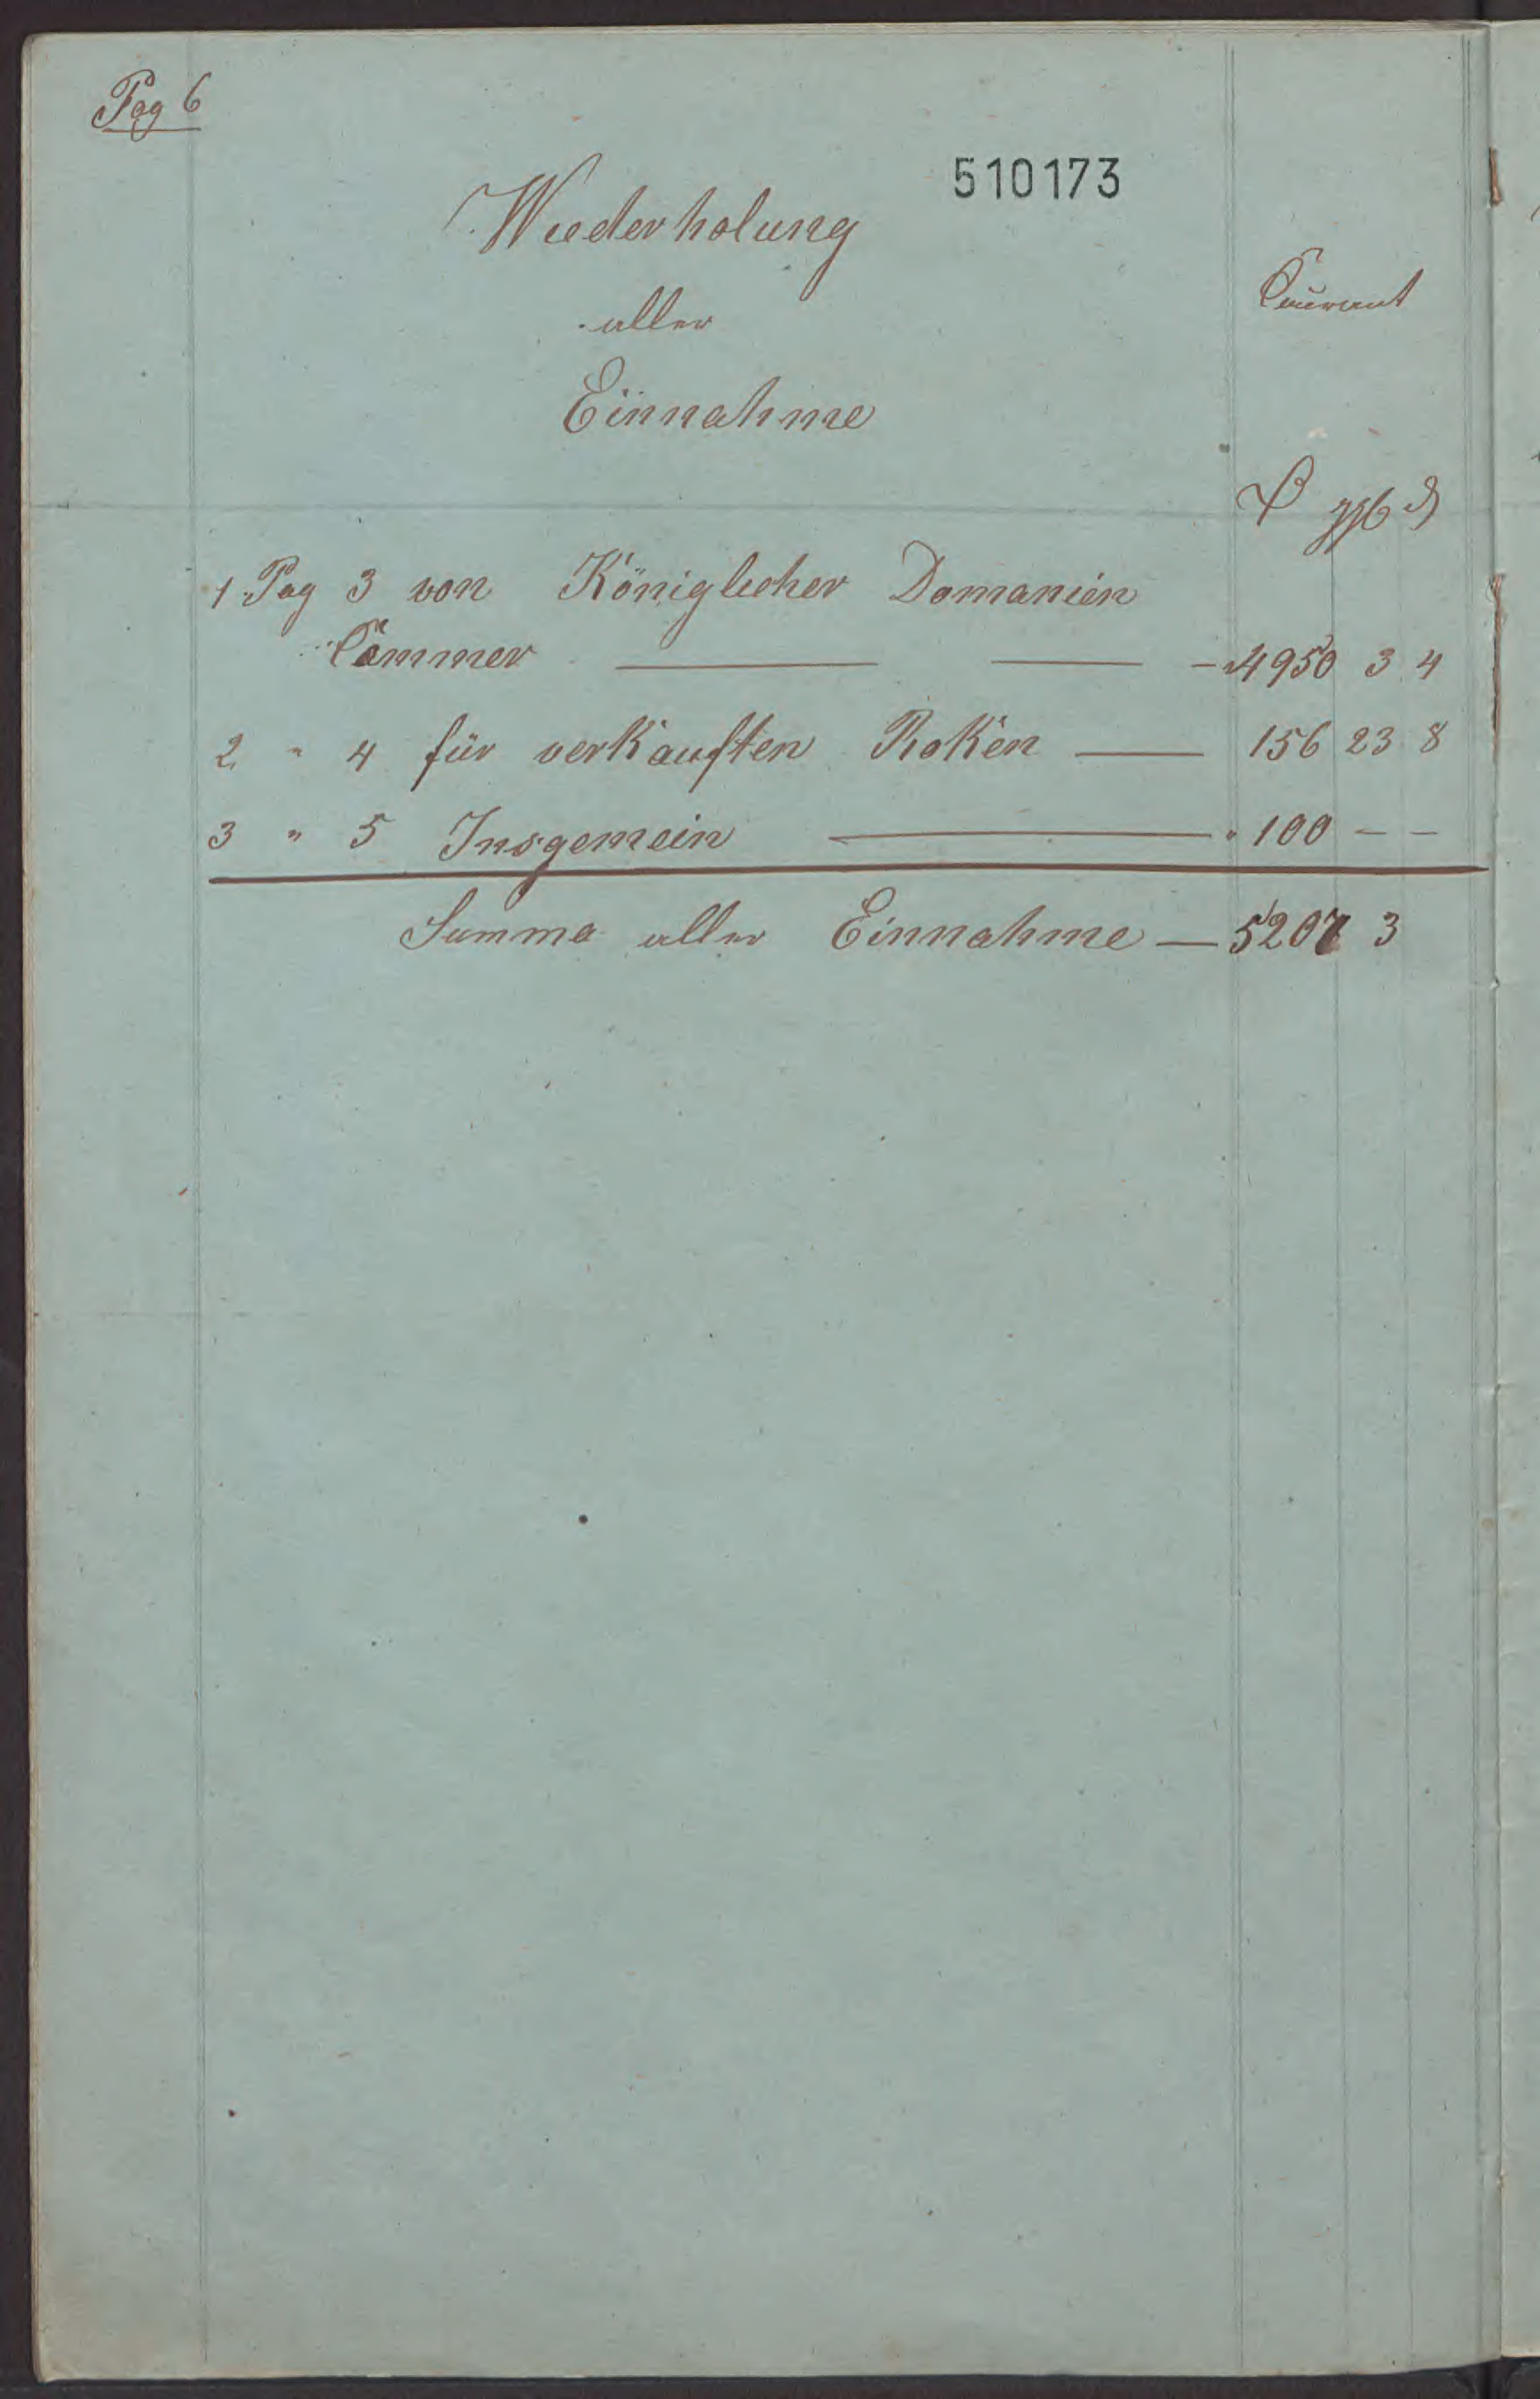 Pag 6
510173
Wiederholung
aller
Einnahme
Courant
ggb ₰
1 Pag 3 von Königlicher Domanien
Cammer — — — 4950 3 4
2 " 4 für verkauften Roken — 156 23 8
3 " 5 Insgemein — " 100 – –
Summa aller Einnahme — 5207 3